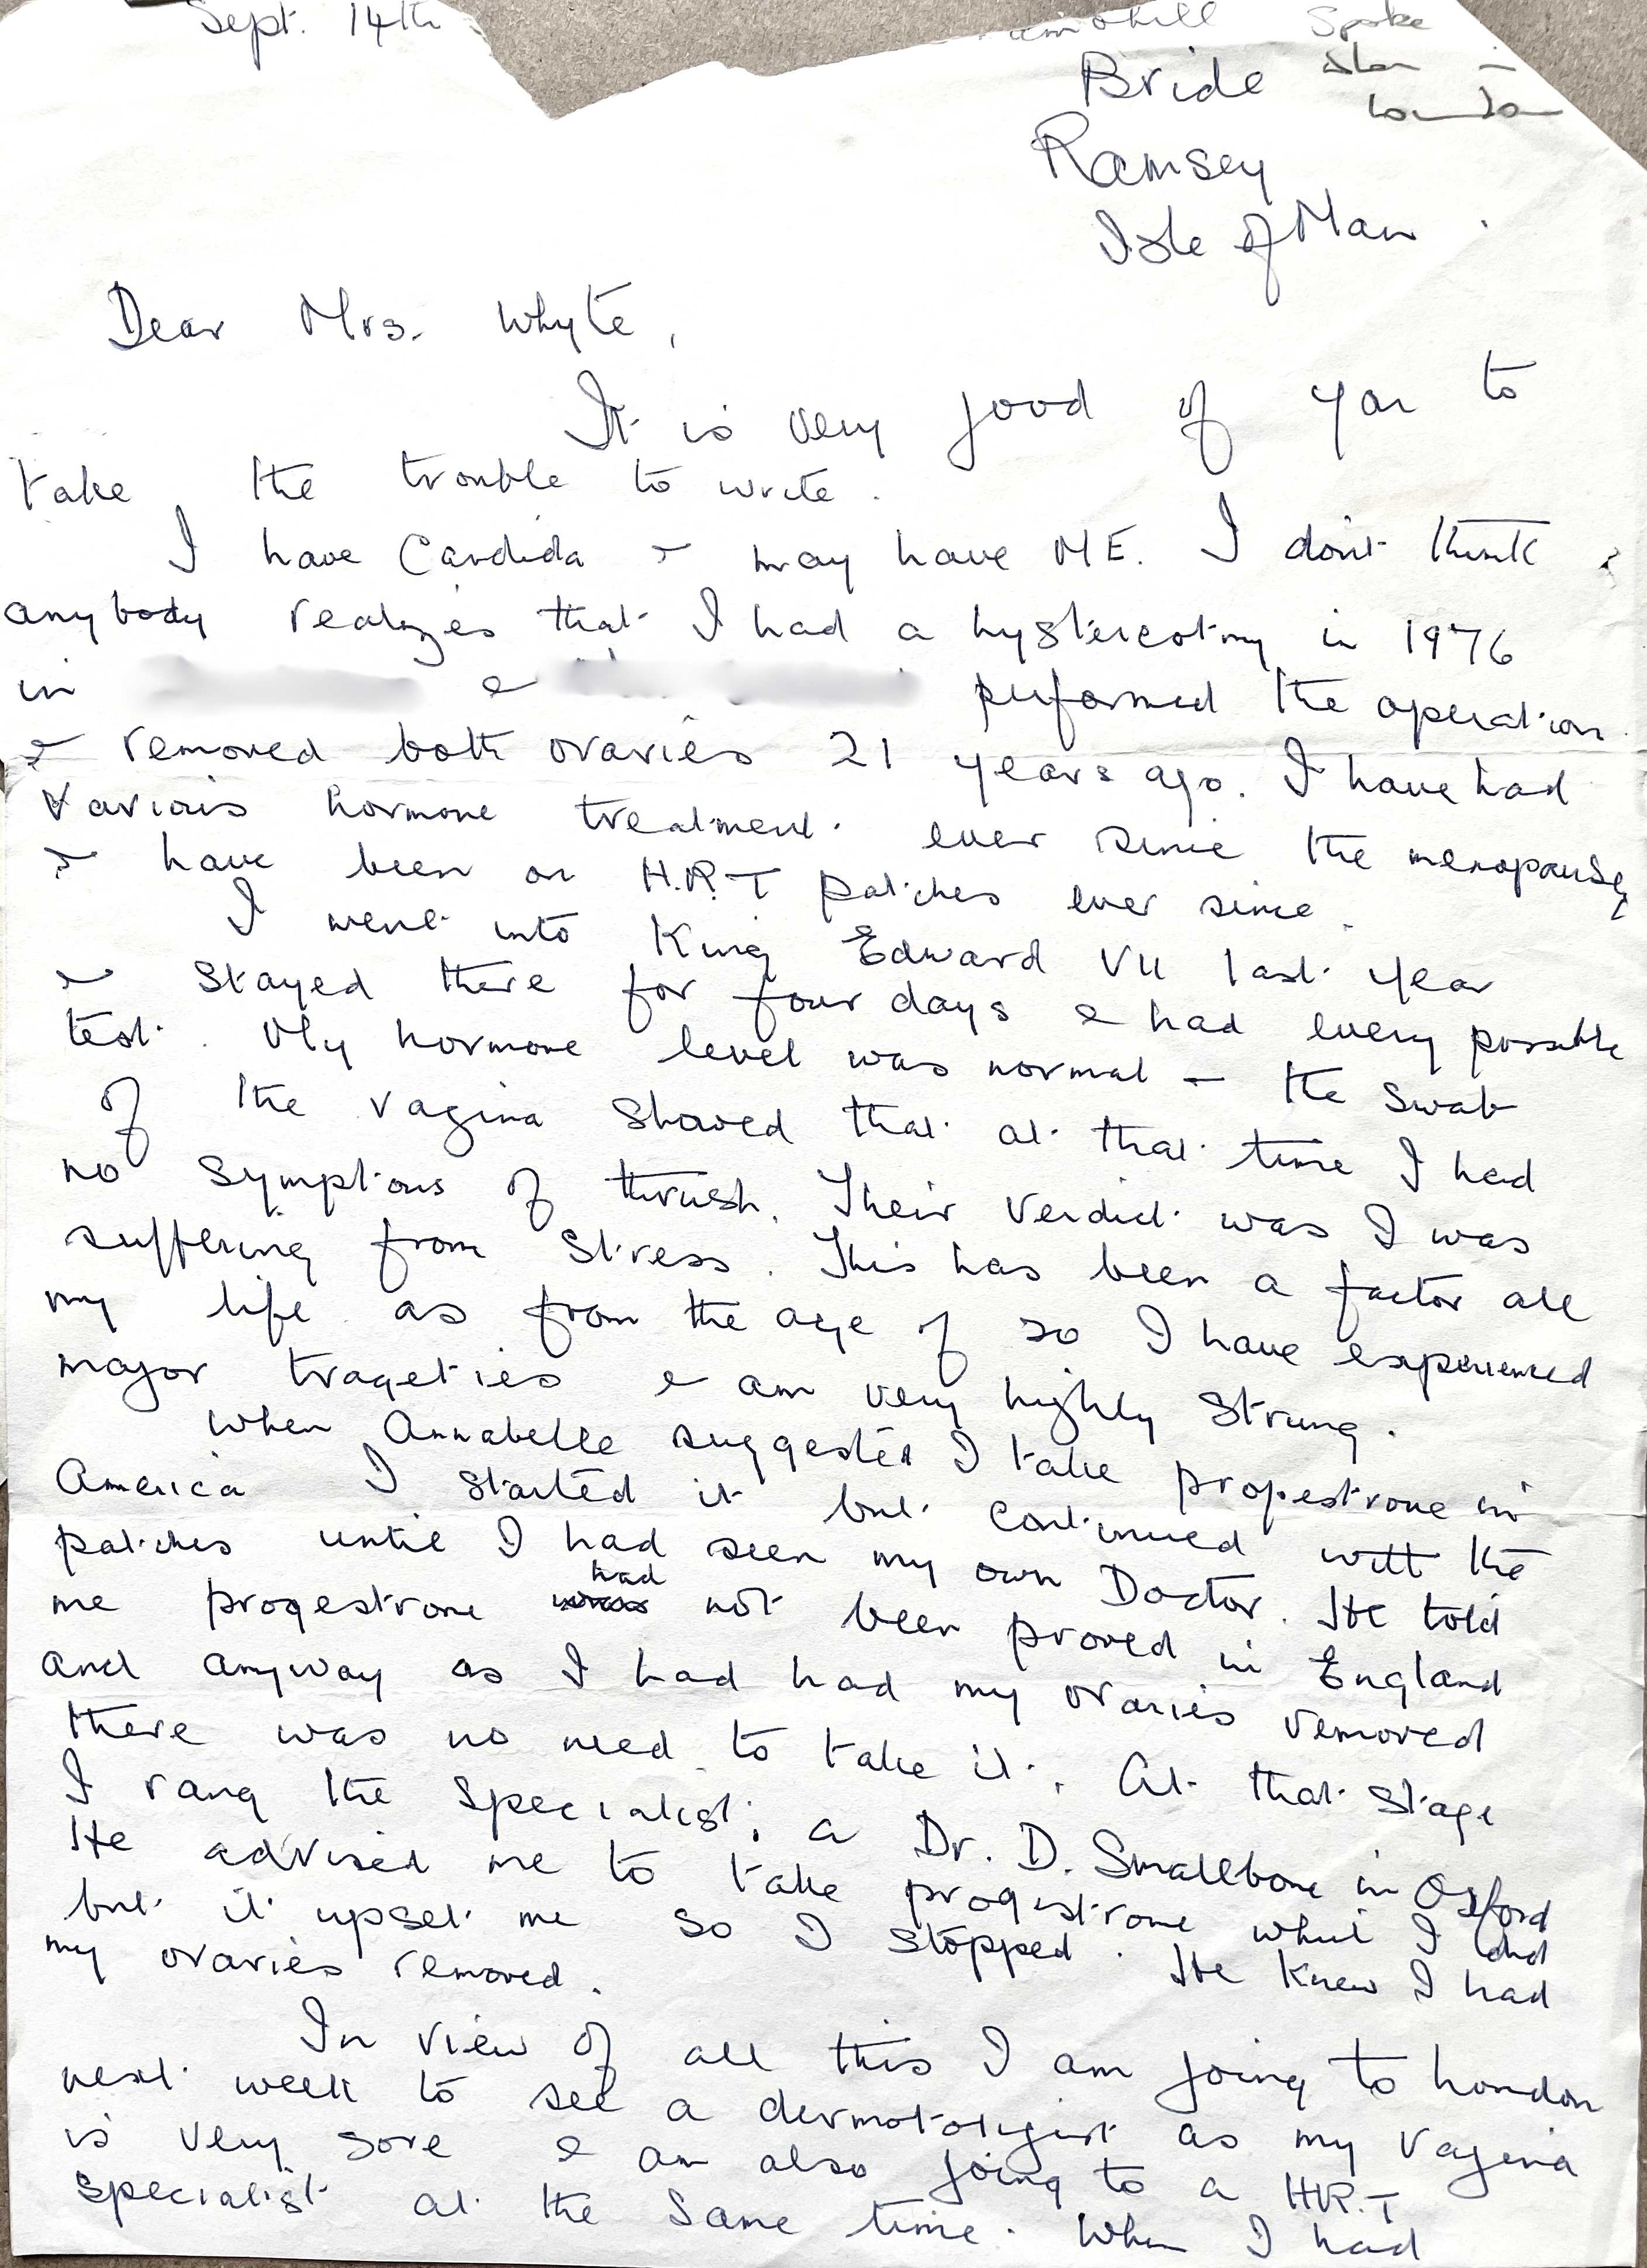 Sept. 14th
Spoke
Bride
London
Ramsey
Isle of Man.
Dear Mrs. Whyte,
It is very good of you to
take the trouble to write.
I have Candida & may have ME. I don't think
anybody realizes that I had a hysterectomy in 1976
in & performed the operation
& removed both ovaries 21 years ago. I have had
various hormone treatment ever since the menopause,
& have been on H.R.T patches ever since.
I went into King Edward VII last year
& stayed there for four days & had every possible
test. My hormone level was normal - the swab
of the vagina showed that at that time I had
no symptons of thrush. Their verdict was I was
suffering from stress. This has been a factor all
my life as from the age of 20 I have experienced
major trageties & am very highly strung.
When Annabelle suggested I take progestrone in
America I started it but continued with the
patches until I had seen my own Doctor. He told
me progestrone had not been proved in England
and anyway as I had had my ovaries removed
there was no need to take it. At that stage
I rang the specialist, a Dr. D. Smallbone in Oxford
He advised me to take progestrone which I did
but it upset me so I stopped. He knew I had
my ovaries removed.
In view of all this I am going to London
next week to see a dermotoligist as my vagina
is very sore & am also going to a H.R.T
specialist at the same time. When I had